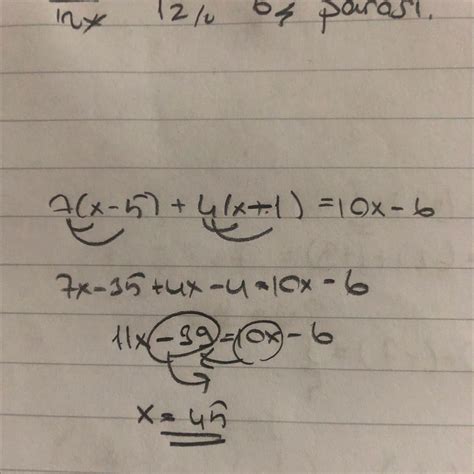 parası.
7(x-5) + 4(x+1) = 10x - 6
7x-35+4x-4=10x-6
11x-39=10x-6
x=45